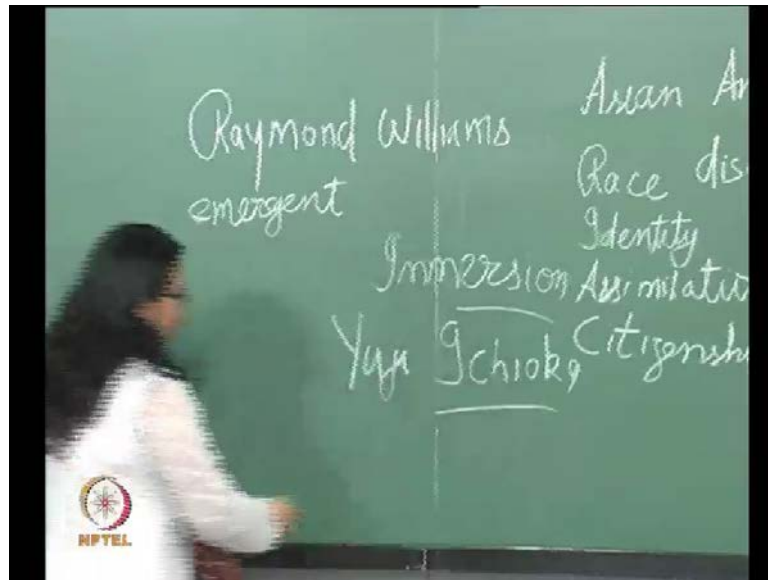 Raymond Williams
emergent
Immersion
Yuji Ichioka
Asian Am
Race dis
Identity
Assimilatio
Citizensh
NPTEL